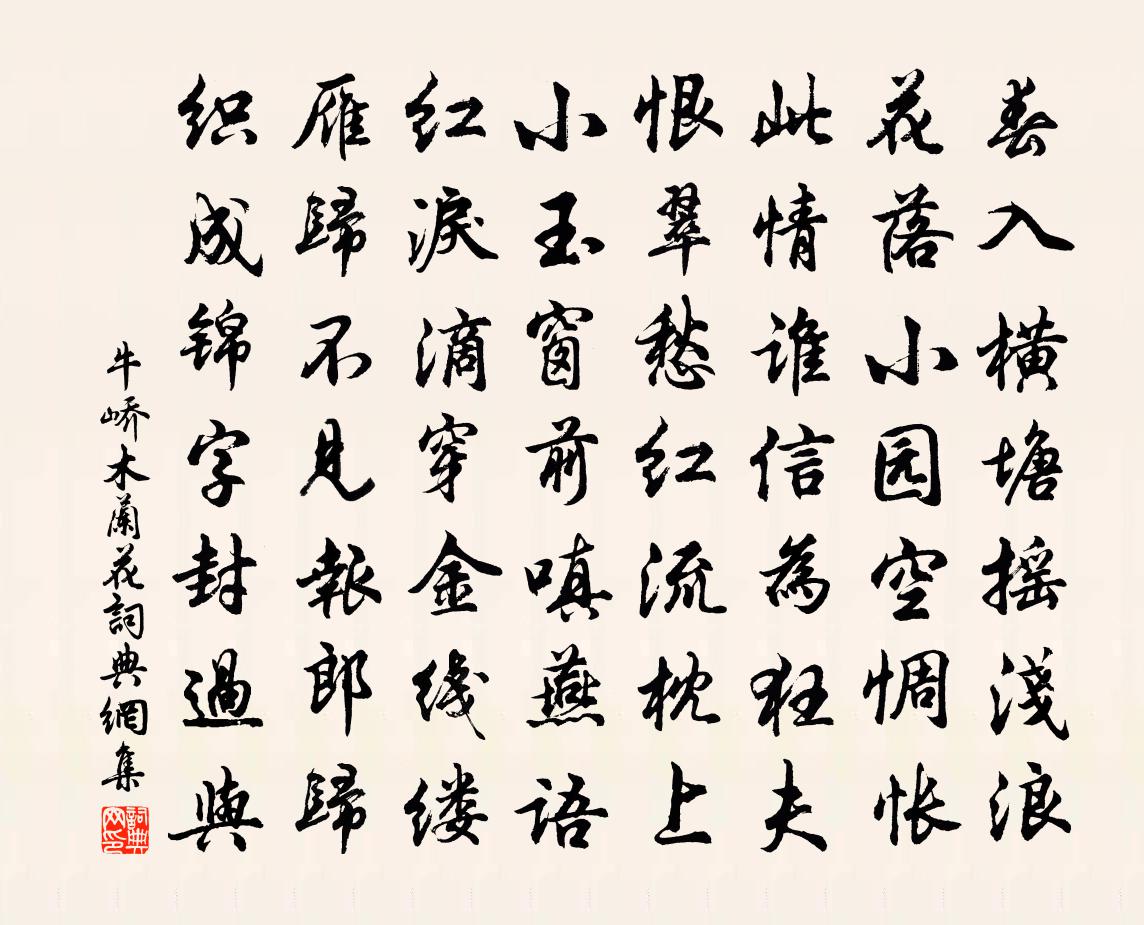 春入横塘摇淺浪
花落小园空惆怅
此情谁信為狂夫
恨翠愁红流枕上
小玉窗前嗔燕语
红淚滴穿金线缕
雁歸不见報郎歸
织成锦字封過與
牛峤木蘭花詞典網集
詞典网印